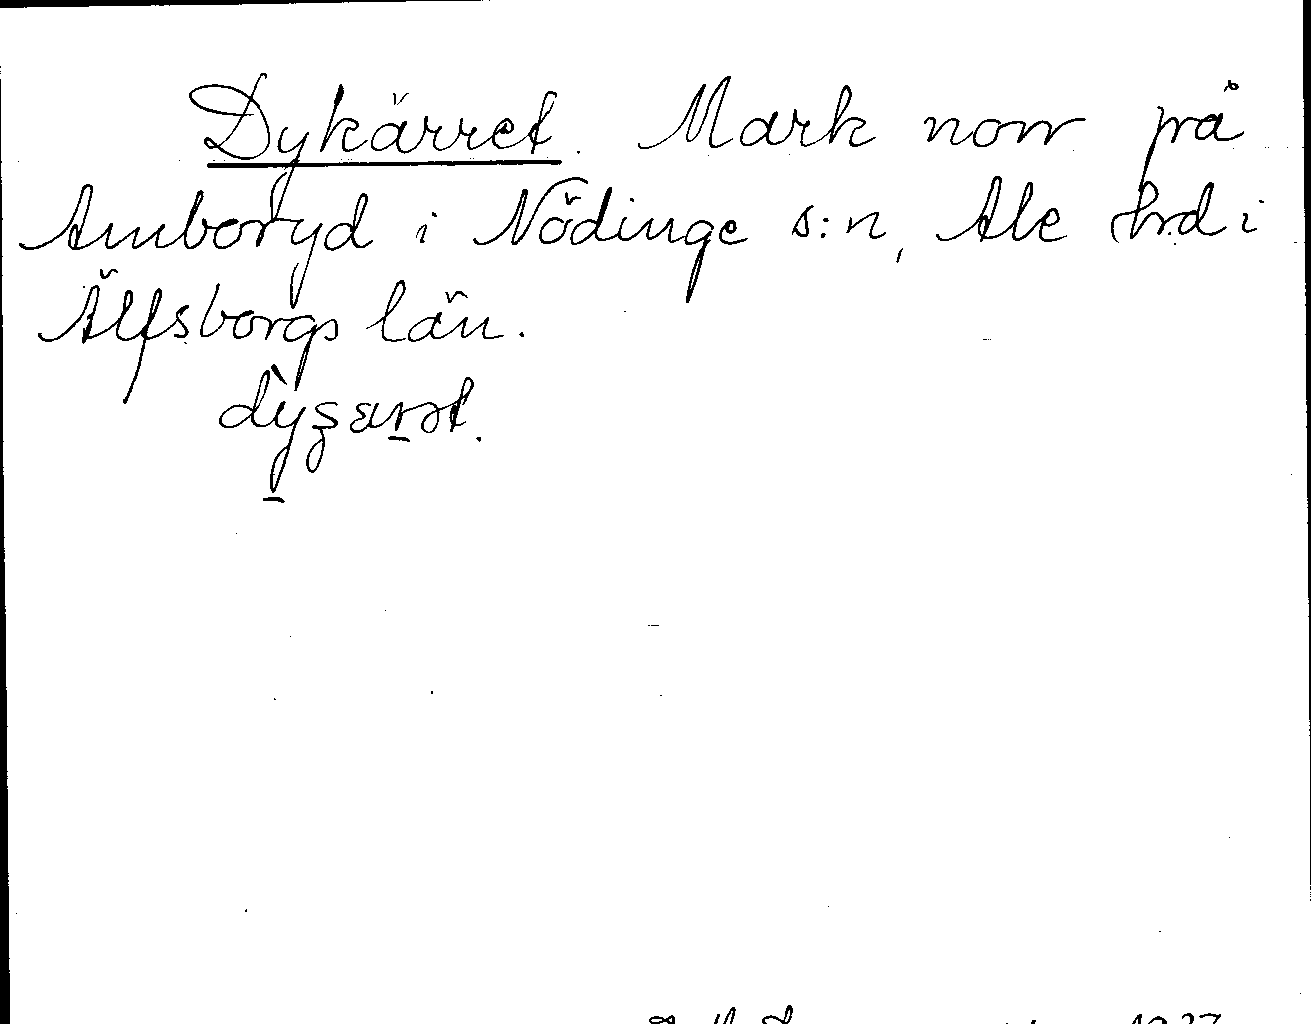 Dykärret. Mark norr på
Amboryd i Nödinge s:n, Ale hrd i
Älfsborgs län.